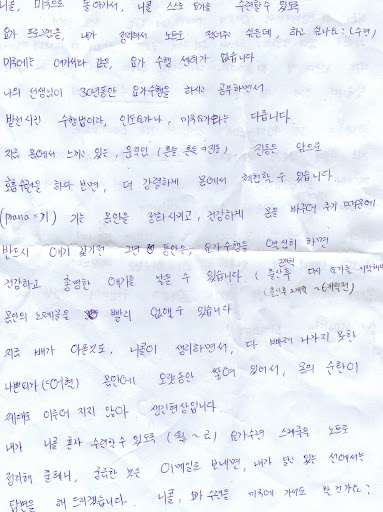 니콜, 미국으로 돌아가서, 니콜 스스로 요가를 수련할 수 있도록
요가 프로그램을, 내가 정리해서 노트로 적어주고 싶은데, 하고 싶나요? (수련)
미국에는 여기서와 같은, 요가 수행 센터가 없습니다.
나의 선생님이 30년동안 요가수행을 하시고 공부하면서
발전시킨 수행법이라, 인도요가나, 미국요가와는 다릅니다.
지금 몸에서 느끼고 있는, 움직임 (흔들 흔들 =진동) 진동은 앞으로
요가수련을 하다 보면, 더 강렬하게 몸에서 체험할 수 있습니다
(prana = 기) 기는 몸안을 정화시키고, 건강하게 몸을 바꾸어 주기 때문에
반드시 애기 갖기전 2년 동안은, 요가수행을 열심히 하면
건강하고 총명한 애기를 낳을 수 있습니다. (출산후 2개월 다시 요가를 시작해서
(출산후 2개월 ~ 6개월전)
몸안의 노폐물을 빨리 없앨 수 있습니다
지금 배가 아픈것도, 니콜이 생리하면서, 다 빠져 나가지 못한
나쁜피가 (=어혈) 몸안에 오랫동안 쌓여 있어서, 몸의 순환이
제대로 이루어 지지 않아 생긴현상입니다.
내가 니콜 혼자 수련할 수 있도록 (월 ~ 금) 요가수련 스케줄을 노트로
정리해 줄테니, 궁금한 것은 이메일로 보내면, 내가 알고 있는 선에서는
답변을 해 드리겠습니다. 니콜, 요가 수련을 미국에 가서도 할 건가요?